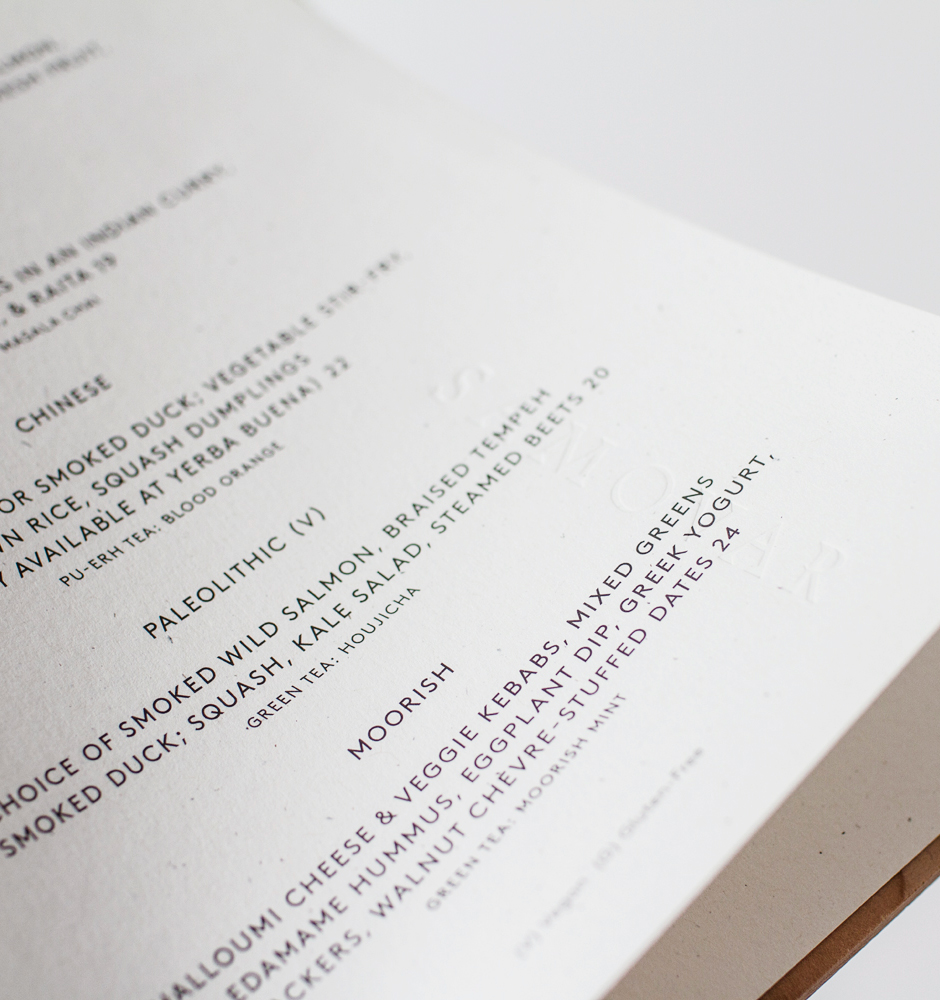 IN AN INDIAN CURRY,
& RAITA 19
MASALA CHAI
CHINESE
OR SMOKED DUCK; VEGETABLE STIR-FRY,
RICE, SQUASH DUMPLINGS
AVAILABLE AT YERBA BUENA) 22
PU-ERH TEA: BLOOD ORANGE
PALEOLITHIC (V)
CHOICE OF SMOKED WILD SALMON, BRAISED TEMPEH
SMOKED DUCK; SQUASH, KALE SALAD, STEAMED BEETS 20
GREEN TEA: HOUJICHA
MOORISH
HALLOUMI CHEESE & VEGGIE KEBABS, MIXED GREENS
EDAMAME HUMMUS, EGGPLANT DIP, GREEK YOGURT,
CKERS, WALNUT CHÈVRE-STUFFED DATES 24
GREEN TEA: MOORISH MINT
(V) Vegan (G) Gluten-Free
SAMOVAR